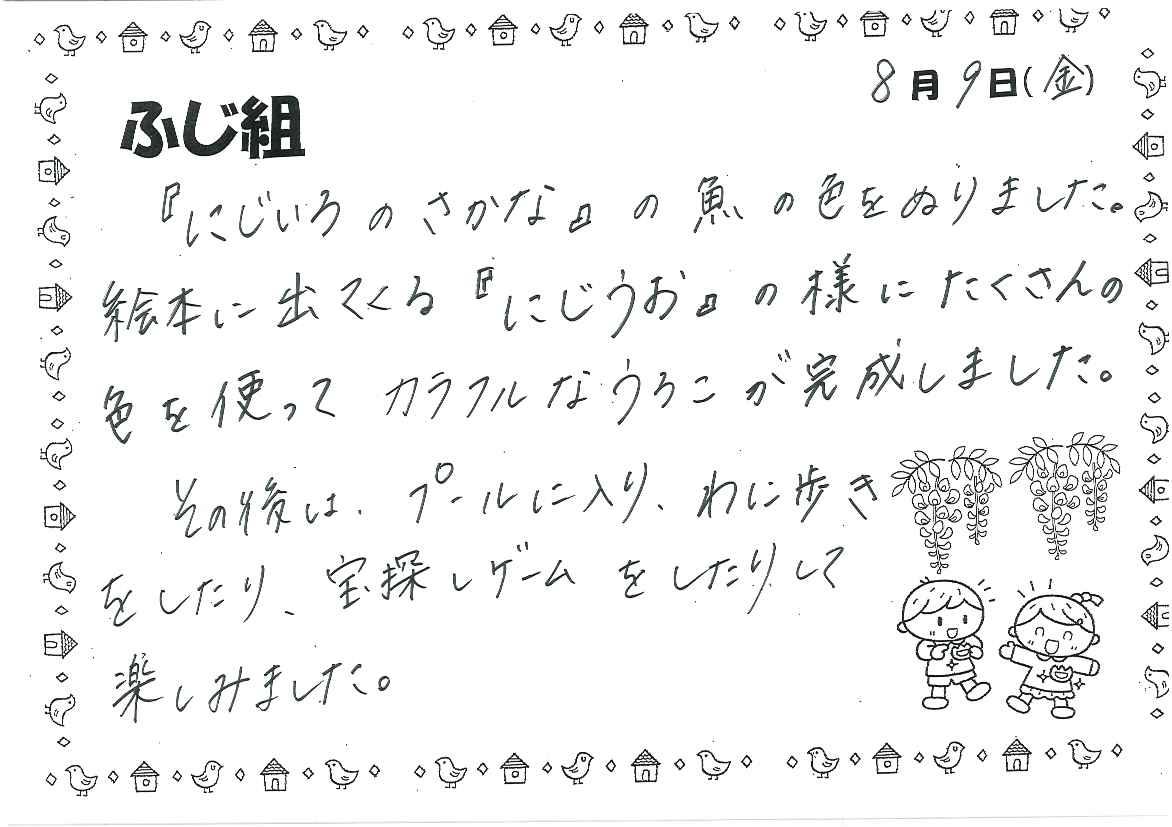 8月9日(金)
ふじ組
『にじいろのさかな』の魚の色をぬりました。
絵本に出てくる『にじうお』の様にたくさんの
色を使ってカラフルなうろこが完成しました。
その後は、プールに入り、わに歩き
をしたり、宝探しゲームをしたりして
楽しみました。